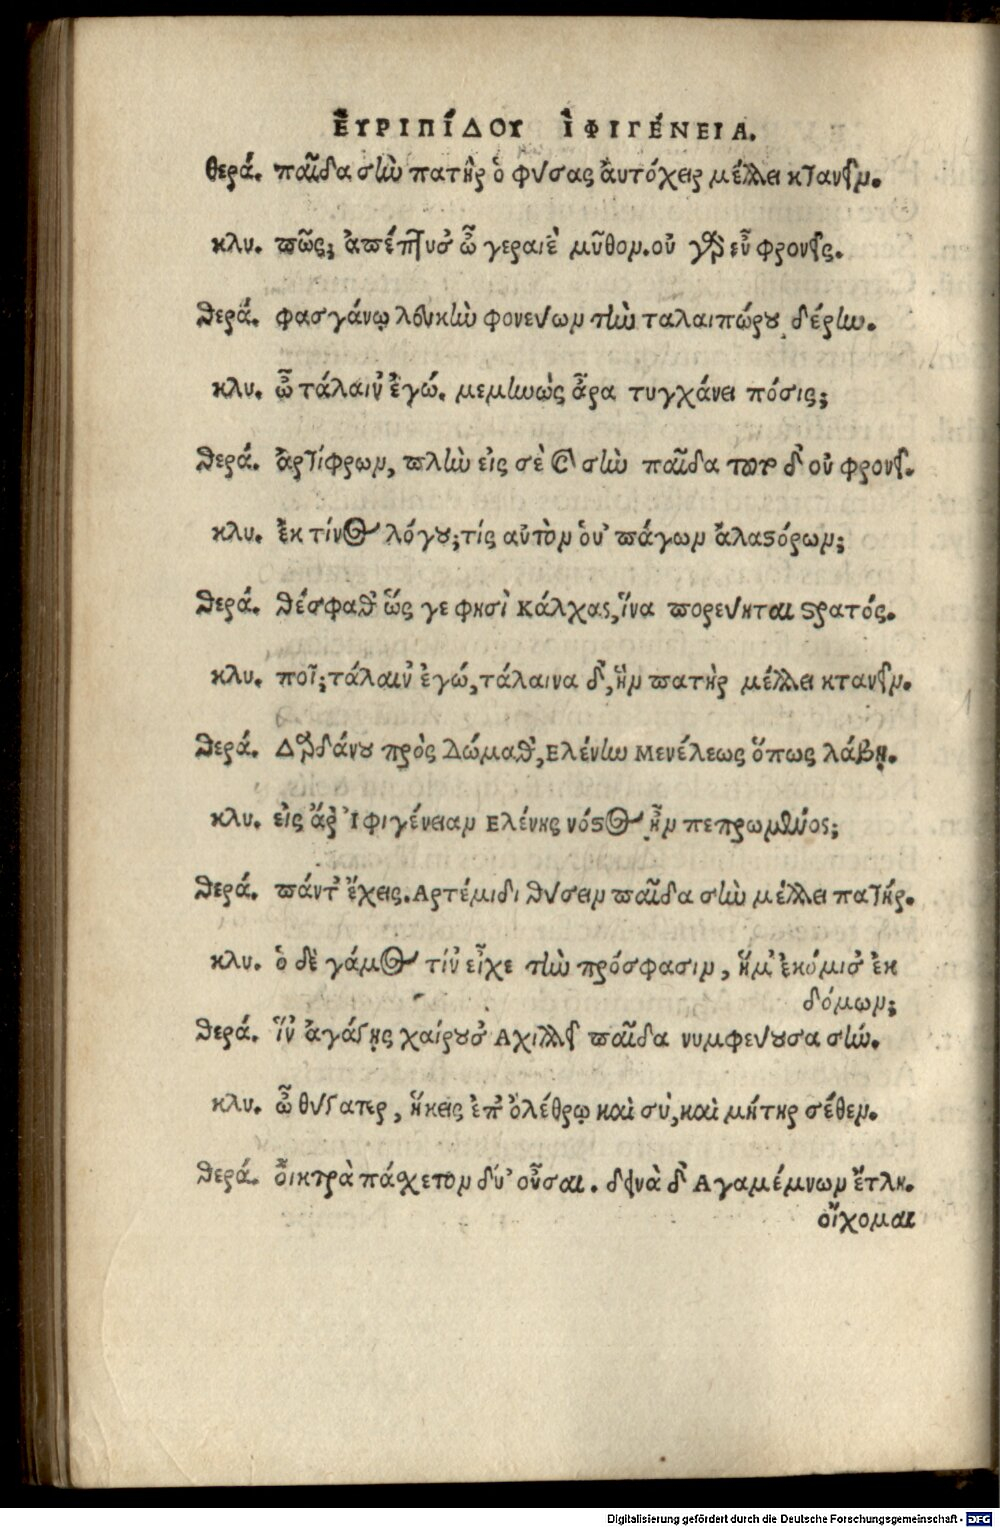 ΕΥΡΙΠΊΔΟΥ ἸΦΙΓΈΝΕΙΑ.
θερά. παῖδα σὴν πατὴρ ὁ φύσας ἀυτόχειρ μέλλει κτανεῖν.
κλυ. πῶς; ἀπέπτυσ᾽ ὦ γεραιὲ μῦθον. οὐ γὰρ εὖ φρονεῖς.
θερά. φασγάνῳ λευκὴν φονεύων τὴν ταλαιπώρου δέρην.
κλυ. ὦ τάλαιν᾽ ἐγώ. μεμηνὼς ἆρα τυγχάνει πόσις;
θερά. ἀρτίφρων, πλὴν εἰς σὲ καὶ σὴν παῖδα τοῦτο δ᾽ οὐ φρονεῖ.
κλυ. ἐκ τίνος λόγου; τίς αὐτὸν οὑπάγων ἀλαστόρων;
θερά. θέσφαθ᾽ ὥς γε φησὶ Κάλχας, ἵνα πορεύηται στρατός.
κλυ. ποῖ; τάλαιν᾽ ἐγώ, τάλαινα δ᾽, ἣν πατὴρ μέλλει κτανεῖν.
θερά. Δαρδάνου πρὸς Δώμαθ᾽, Ελένην Μενέλεως ὅπως λάβῃ.
κλυ. εἰς ἄρ᾽ Ἰφιγένειαν Ελένης νόστος ἦν πεπρωμένος;
θερά. πάντ᾽ ἔχεις. Αρτέμιδι θύσειν παῖδα σὴν μέλλει πατήρ.
κλυ. ὁ δὲ γάμος τίν᾽ εἶχε τὴν πρόσφασιν, ἥμ᾽ ἐκόμισ᾽ ἐκ
δόμων;
θερά. ἵν᾽ ἀγάγῃς χαίρουσ᾽ Αχιλλεῖ παῖδα νυμφεύουσα σήν.
κλυ. ὦ θύγατερ, ἥκεις ἐπ᾽ ὀλέθρῳ καὶ σύ, καὶ μήτηρ σέθεν.
θερά. οἰκτρὰ πάσχετον δύ᾽ οὖσαι. δεινὰ δ᾽ Αγαμέμνων ἔτλη.
οἴχομαι
Digitalisierung gefördert durch die Deutsche Forschungsgemeinschaft - DFG